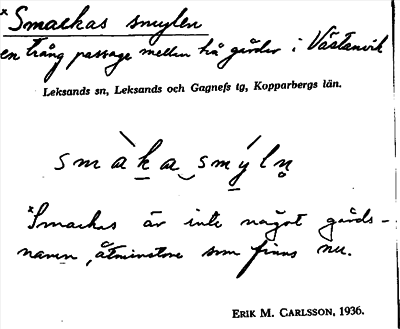 *Smackas smylen
en trång passage mellan två gårdar i Västanvik
Leksands sn, Leksands och Gagnefs tg, Kopparbergs län.
smàka smýln̥
*Smackas är inte något gårds-
namn, åtminstone som finns nu.
ERIK M. CARLSSON, 1936.